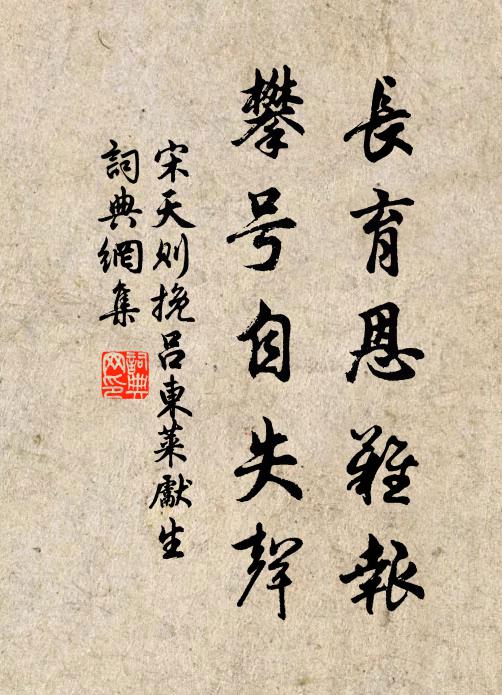 長育恩難報
攀号自失聲
宋天則挽呂東萊獻生
詞典網集
詞典
网印